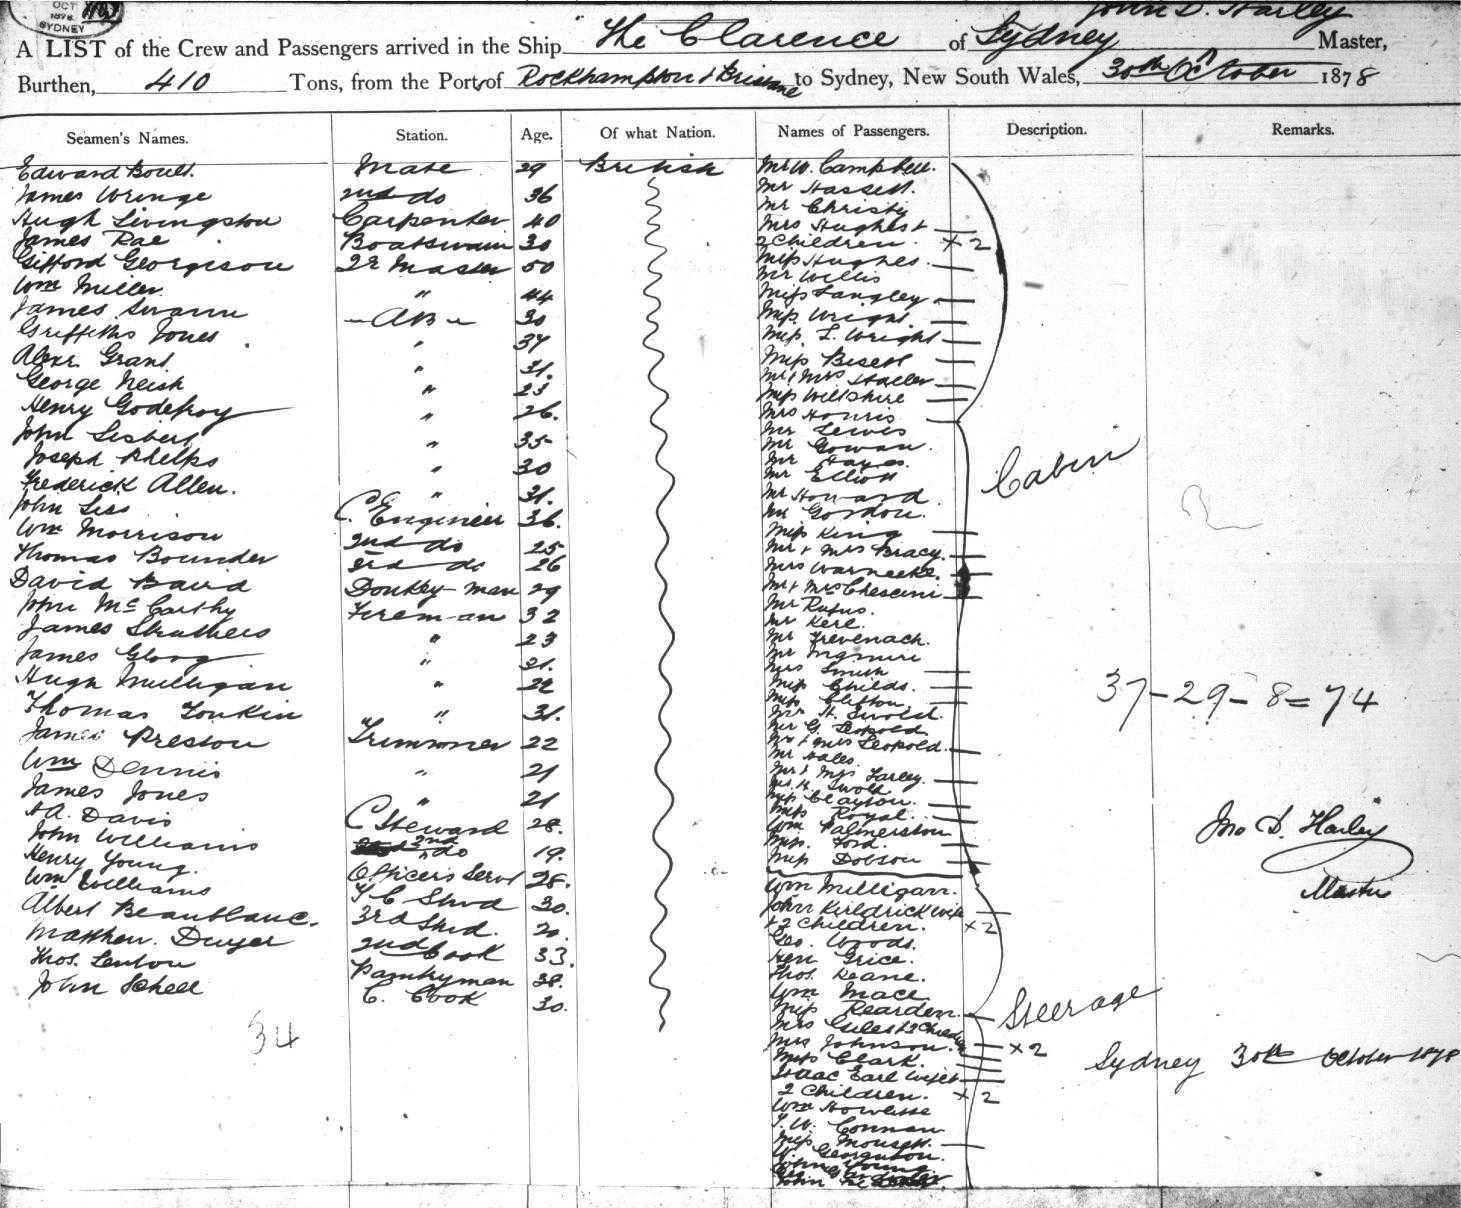 OCT
1878
SYDNEY
John D. Harley
A LIST of the Crew and Passengers arrived in the Ship The Clarence of Sydney Master,
Burthen, 410 Tons, from the Port of Rockhampton & to Sydney, New South Wales, 30th October 1878
Seamen's Names. Station. Age. Of what Nation. Names of Passengers. Description. Remarks.
Edward Boult Mate 29 British
James Wringe 2nd do 36
Hugh Livingston Carpenter 40
James Rae Boatswain 30
Gifford Georgeson Qr Master 50
Wm Miller " 44
James Swann - AB - 30
Griffiths Jones " 37
Alexr. Grant " 31.
George Neish " 23
Henry Godefroy " 26.
John " 35
Joseph Phelps " 30
Frederick Allen. " 31.
John Liss C. Engineer 36.
Wm Morrison 2nd do 25
Thomas Bounder 3rd do 26
David Baird Donkey-man 29
John McCarthy Fireman 32
James Struthers " 23
James Gloag " 31.
Hugh Mulligan " 22
Thomas Tonkin " 31.
James Preston Trimmer 22
Wm Dennis " 21
James Jones " 21
A. Davis C Steward 28.
John Williams 2nd do 19.
Henry Young. Officers Servt 28.
Wm Williams Stwd 30.
Albert Beaublanc. 3rd Stwd. 20.
Matthew. Dwyer 2nd Cook 33.
Thos. Lenton Pantryman 38.
John Schell C. Cook 30.
34
Mr W. Campbell.
Mr Hassett.
Mr Christy
Mrs Hughes +
2 Children. x 2
Miss Hughes.
Mr Willis
Miss Langley
Miss Wright.
Miss L. Wright
Miss Bisett
Mr & Mrs
Miss Wiltshire
Mrs Honris
Mr Lewis
Mr Gowan.
Mr Hayes.
Mr Elliott
Mr Howard
Mr Gordon.
Miss King
Mr & Mrs Bracy.
Mrs Warnecke.
Mr & Mrs
Mr Rufus.
Mr Kerr.
Mr Trevenach.
Mr
Mrs Smith
Miss Childs.
Miss Clifton
Mr H.
Mr G. Leopold
Mr & Mrs Leopold.
Mr Hales.
Mr & Mrs Farley.
Miss Clayton.
Miss Royal.
Wm Palmerston
Miss. Ford.
Miss Dobson
Cabin
Wm Milligan.
John Kirldrick wife
+ 2 Children. x 2
Geo. Woods.
Hen Grice.
Thos. Keane.
Wm Mace
Miss Rearden.
Mrs Giles + 2 Children
Mrs Johnson. x 2
Miss Clark.
Isaac Earl wife +
2 Children. x 2
Wm
T. W. Connan
Miss
W. Georgeson.
John Young
John
Steerage
37 - 29 - 8 = 74
Jno D. Harley
Master
Sydney 30th October 1878